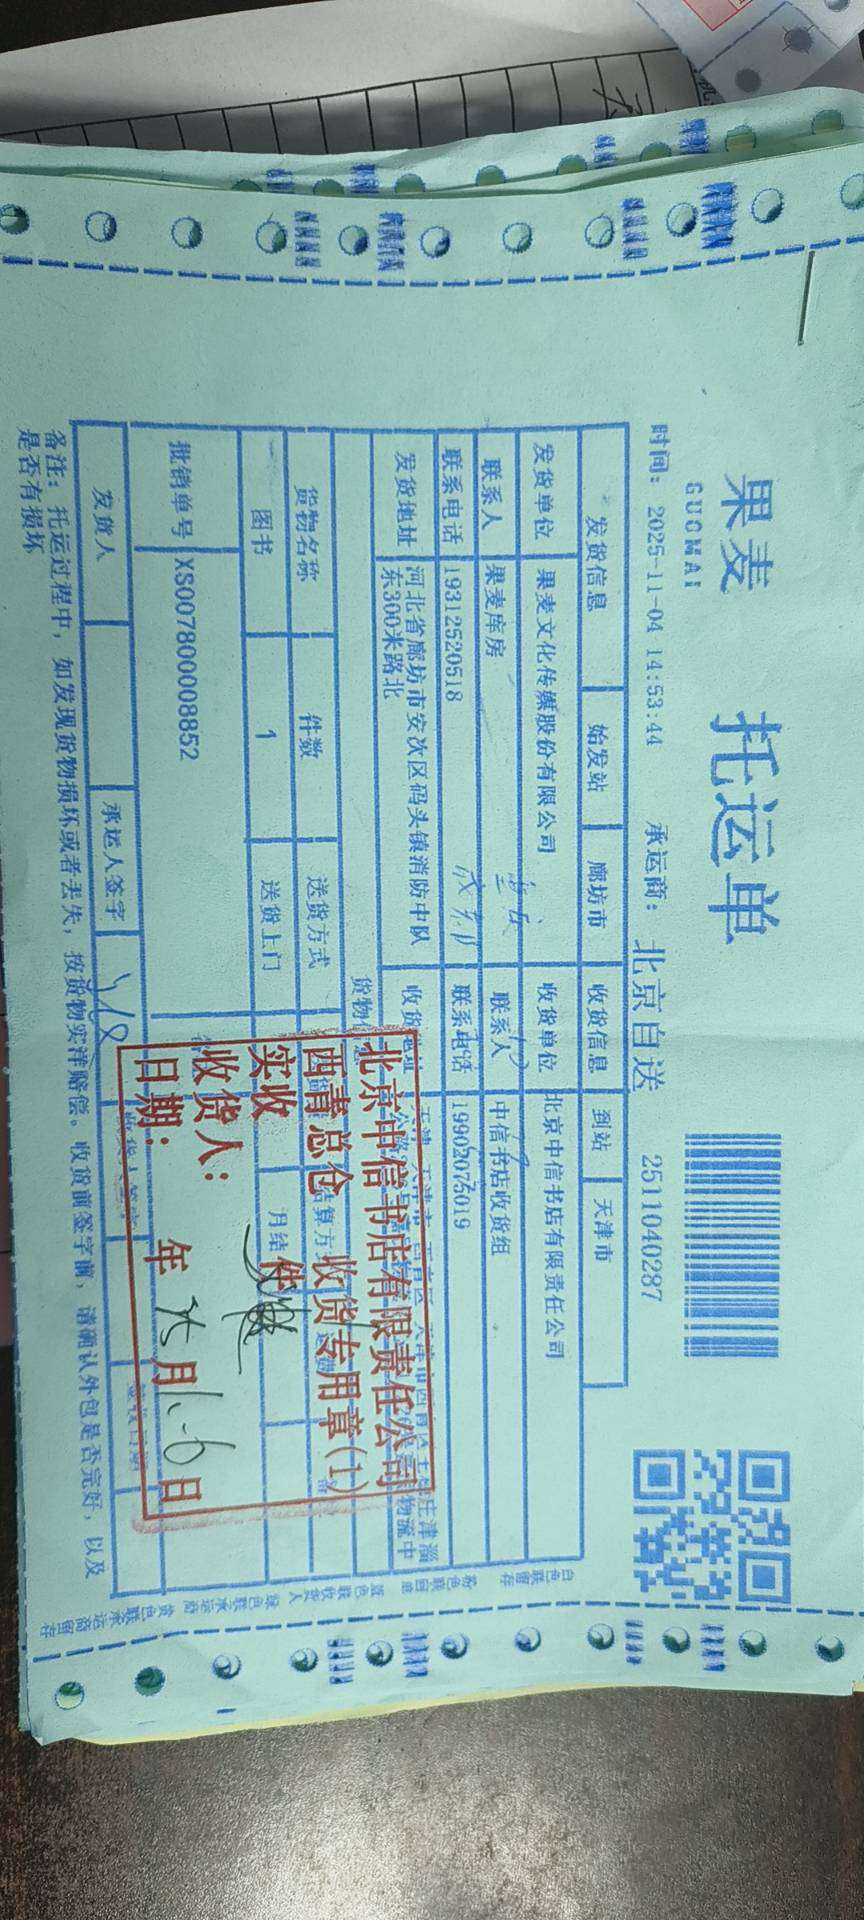 果麦 托运单
GUOMAI
时间：2025-11-04 14:53:44 承运商：北京自送 2511040287
发货信息 始发站 廊坊市 收货信息 到站 天津市
发货单位 果麦文化传媒股份有限公司 收货单位 北京中信书店有限责任公司
联系人 果麦库房 联系人 中信书店收货组
联系电话 19312520518 联系电话 19902075019
发货地址 河北省廊坊市安次区码头镇消防中队东300米路北 收货地址
货物名称 件数 送货方式
图书 1 送货上门 月结
批销单号 XS007800008852
发货人 承运人签字
备注：托运过程中，如发现货物损坏或者丢失，按货物实洋赔偿。收货前签字前，请确认外包是否完好，以及
是否有损坏
北京中信书店有限责任公司
西青总仓 收货专用章(1)
实收 件
收货人：
日期： 年 月 日
白色联留存
粉色联回单
蓝色联收货人
绿色联承运商
黄色联承运商留存